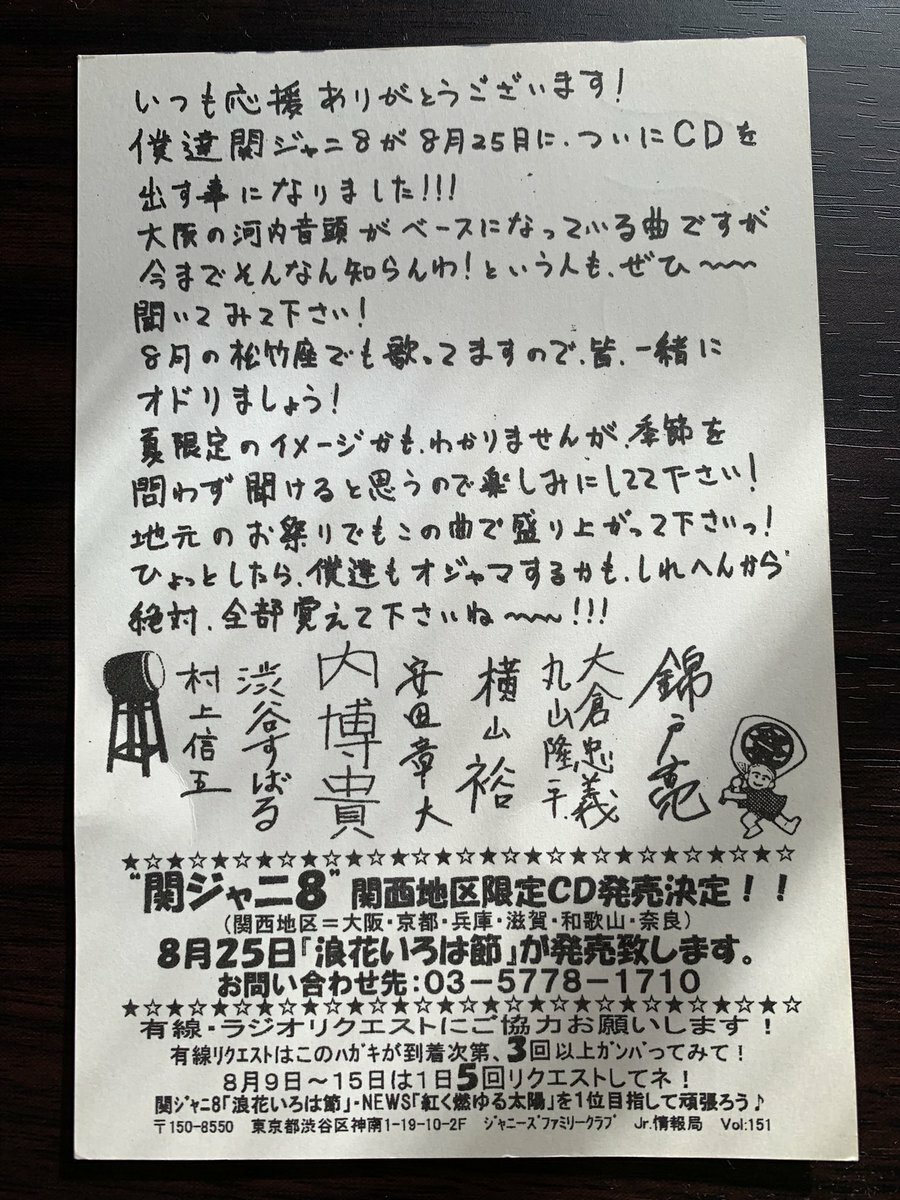 いつも応援ありがとうございます！
僕達関ジャニ8が8月25日に、ついにCDを
出す事になりました!!!
大阪の河内音頭がベースになっている曲ですが
今までそんなん知らんわ！という人も、ぜひ〜〜
聞いてみて下さい！
8月の松竹座でも歌ってますので、皆、一緒に
オドりましょう！
夏限定のイメージかも、わかりませんが、季節を
問わず聞けると思うので楽しみにしてて下さい！
地元のお祭りでもこの曲で盛り上がって下さいっ！
ひょっとしたら、僕達もオジャマするかも、しれへんから
絶対、全部覚えて下さいね〜〜!!!
錦戸亮
大倉忠義
丸山隆平.
横山裕
安田章大
内博貴
渋谷すばる
村上信五
★☆★☆★☆★☆★☆★☆★☆★☆★☆★☆★☆★☆★☆★☆★☆
“関ジャニ8”関西地区限定CD発売決定！！
(関西地区＝大阪・京都・兵庫・滋賀・和歌山・奈良)
8月25日「浪花いろは節」が発売致します。
お問い合わせ先：03－5778－1710
★☆★☆★☆★☆★☆★☆★☆★☆★☆★☆★☆★☆★☆★☆★☆
有線・ラジオリクエストにご協力お願いします！
有線リクエストはこのハガキが到着次第、3回以上ガンバってみて！
8月9日～15日は1日5回リクエストしてネ！
関ジャニ8「浪花いろは節」・NEWS「紅く燃ゆる太陽」を1位目指して頑張ろう♪
〒150-8550 東京都渋谷区神南1-19-10-2F ジャニーズファミリークラブ Jr.情報局 Vol:151